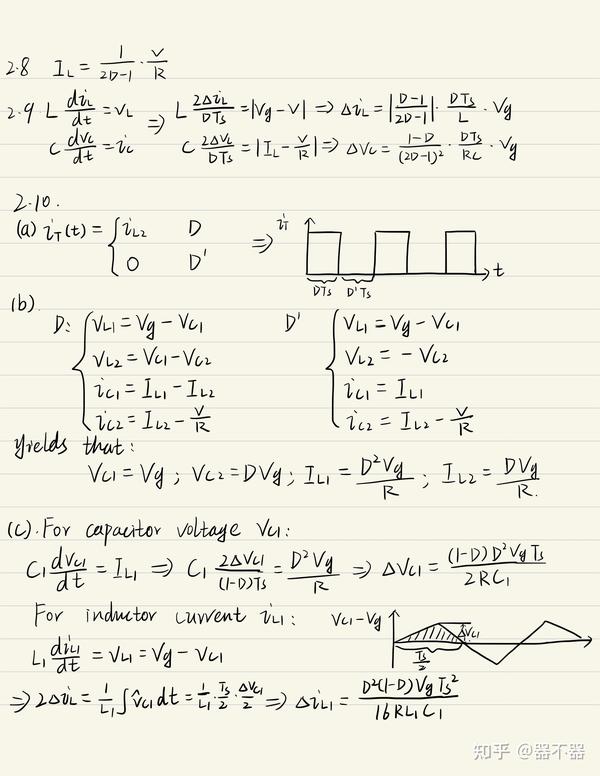 2.8 I_L = 1/(2D-1) · V/R
2.9 L di_L/dt = v_L ⇒ L 2Δi_L/DTs = |Vg-V| ⇒ Δi_L = |(D-1)/(2D-1)| · DTs/L · Vg
C dv_C/dt = i_C C 2ΔV_C/DTs = |I_L - V/R| ⇒ ΔV_C = (1-D)/(2D-1)² · DTs/RC · Vg
2.10.
(a) i_T(t) = { i_L2 D
0 D' ⇒ i_T t
DTs D'Ts
(b)
D: { V_L1 = Vg - V_C1 D' { V_L1 = Vg - V_C1
V_L2 = V_C1 - V_C2 V_L2 = - V_C2
i_C1 = I_L1 - I_L2 i_C1 = I_L1
i_C2 = I_L2 - V/R i_C2 = I_L2 - V/R
yields that:
V_C1 = Vg ; V_C2 = DVg ; I_L1 = D²Vg/R ; I_L2 = DVg/R.
(c). For capacitor voltage V_C1:
C_1 dV_C1/dt = I_L1 ⇒ C_1 2ΔV_C1/(1-D)Ts = D²Vg/R ⇒ ΔV_C1 = (1-D)D²VgTs/2RC_1
For inductor current i_L1: V_C1-Vg ΔV_C1
L_1 di_L1/dt = V_L1 = Vg - V_C1 Ts/2
⇒ 2Δi_L = 1/L_1 ∫ v̂_C1 dt = 1/L_1 · Ts/2 · ΔV_C1/2 ⇒ Δi_L1 = D²(1-D)VgTs²/16RL_1C_1
知乎 @器不器